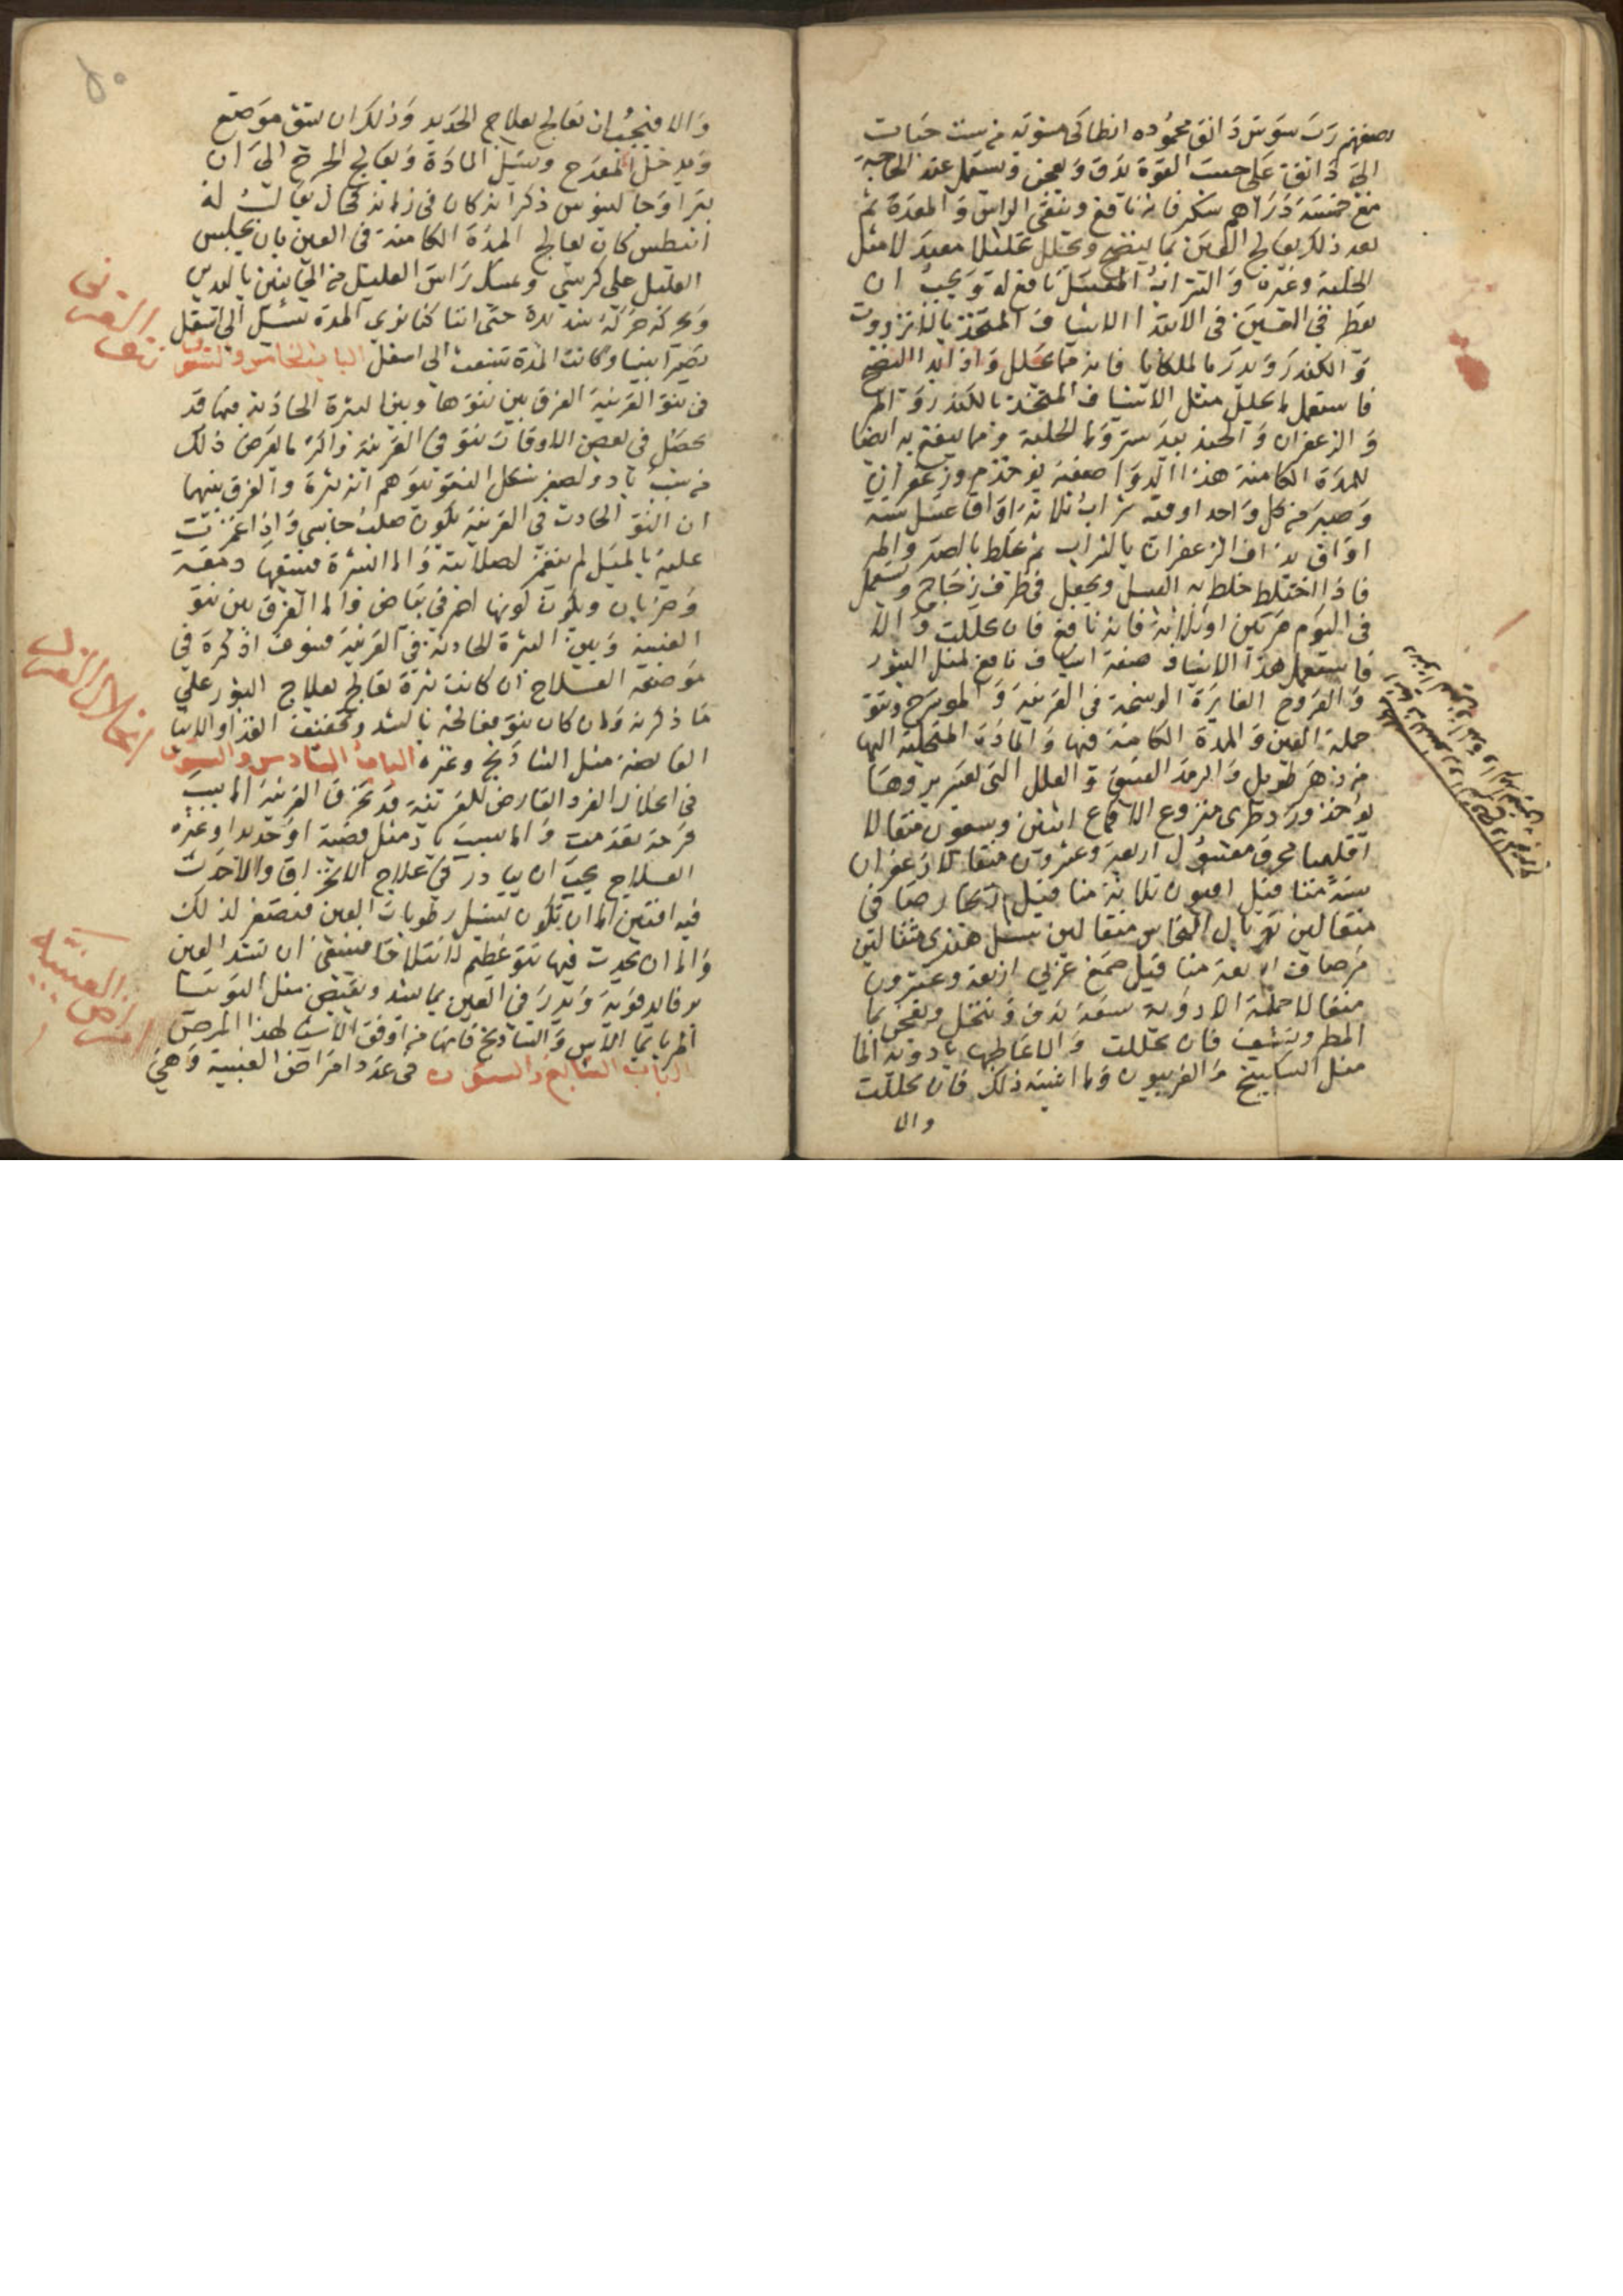 نصفهم رب سوس دانق محموده انطاكى مشويه من ست حبات
الى دانق على حسب القوة يدق ويعجن ويستعمل عند الحاجة
مع خمسة دراهم سكر فانه نافع وينقى الراس والمعدة ثم
بعد ذلك يعالج العين بما ينضج ويحلل تحليلا معتدلا مثل
الحلبة وغيره والتتر ابه المغسل نافع له ويجب ان
يقطر فى العين فى الابتدا الاشياف المتخذ بالانزروت
والكندر ويدر بالملكايا فانه مما يحلل واذا بدا النضج
فاستعمل ما يحلل مثل الاشياف المتخذ بالكندر والمر
والزعفران والجند بيدستر وما الحلبة ومما ينتفع به ايضا
للمدة الكامنة هذا الدوا صفته يوخذ مر وزعفران
وصبر من كل واحد اوقية شراب ثلاثة اواق عسل ستة
اواق يداف الزعفران بالشراب ثم يخلط بالصبر والمر
فاذا اختلط خلط به العسل ويجعل فى ظرف زجاج ويستعمل
فى اليوم مرتين او ثلاثة فانه نافع فان تحللت والا
فاستعمل هذا الاشياف صفة اشياف نافع لمثل البثور
والقروح الغايرة الوسخة فى القرنية والمورسرج ونتو
جملة العين والمدة الكامنة فيها والمادة المتحلبة اليها
من دهر طويل والرمد العتيق والعلل التى يعسر بروها
يوخذ ورد طرى منزوع الاقماع اثنين وسبعون مثقالا
اقليميا محرق مغسول اربعة وعشرون مثقالا زعفران
ستة مثاقيل افيون ثلاثة مثاقيل زنجار صافى
مثقالين توبال النحاس مثقالين سنبل هندى مثقالين
مر صاف اربعة مثاقيل صمغ عربى اربعة وعشرون
مثقالا جملة الادوية سبعة يدق وتنخل ويعجن بما
المطر ويشيف فان تحللت والا عالجها بادوية
مثل السكبينج والفربيون وما اشبه ذلك فان تحللت
والا
والا فيجب ان تعالج بعلاج الحديد وذلك ان يشق موضع
ويدخل المقدح ويسيل المادة ويعالج الجرح الى ان
يبرا وجالينوس ذكر انه كان فى زمانه كحال يقال له
انسطس كان يعالج المدة الكامنة فى العين بان يجلس
العليل على كرسى ويمسك راس العليل من الجانبين باليدين
ويحركه حركة شديدة حتى اننا كنا نرى المدة تسيل الى اسفل
تصيرا بينا وكانت المدة تنبعث الى اسفل الباب الخامس والستون
فى نتو القرنية الفرق بين نتوها وبين البثرة الحادثة فيها قد
يحصل فى بعض الاوقات نتو فى القرنية واكثر ما يعرض ذلك
من سبب باد ولصغر شكل النتو يتوهم انه بثرة والفرق بينهما
ان النتو الحادث فى القرنية يكون صلب جاسى واذا غمزت
عليه بالميل لم ينغمز لصلابته واما البثرة فيتبعها دمعة
وضربان ويكون لونها احمر فى بياض واما الفرق بين نتو
العنبية وبين البثرة الحادثة فى القرنية فسوف اذكره فى
موضعه العلاج ان كانت بثرة تعالج بعلاج البثور على
ما ذكرته وان كان نتو فعالجه بالشد وتخفيف الغذا والاشيا
القابضة مثل الشاذنج وغيره الباب السادس والستون
فى انحلال الفرد العارض للقرنية قد تخرق القرنية اما بسبب
قرحة تقدمت واما بسبب باد مثل قصبة او حديد او غيره
العلاج يجب ان يبادر فى علاج الانخراق والا حدث
فيه افتين اما ان يكون تسيل رطوبات العين فتصغر لذلك
واما ان يحدث فيها نتو عظيم فينبغى ان تشد العين
برفايد قوية ويدر فى العين بما يشد ويقبض مثل التوتيا
المربا بما الاس والشاذنج فانها من اوفق الاشيا لهذا المرض
الباب السابع والستون فى عدد امراض العنبية وهى
نتو القرنية
انحلال القرنية
امراض العنبية